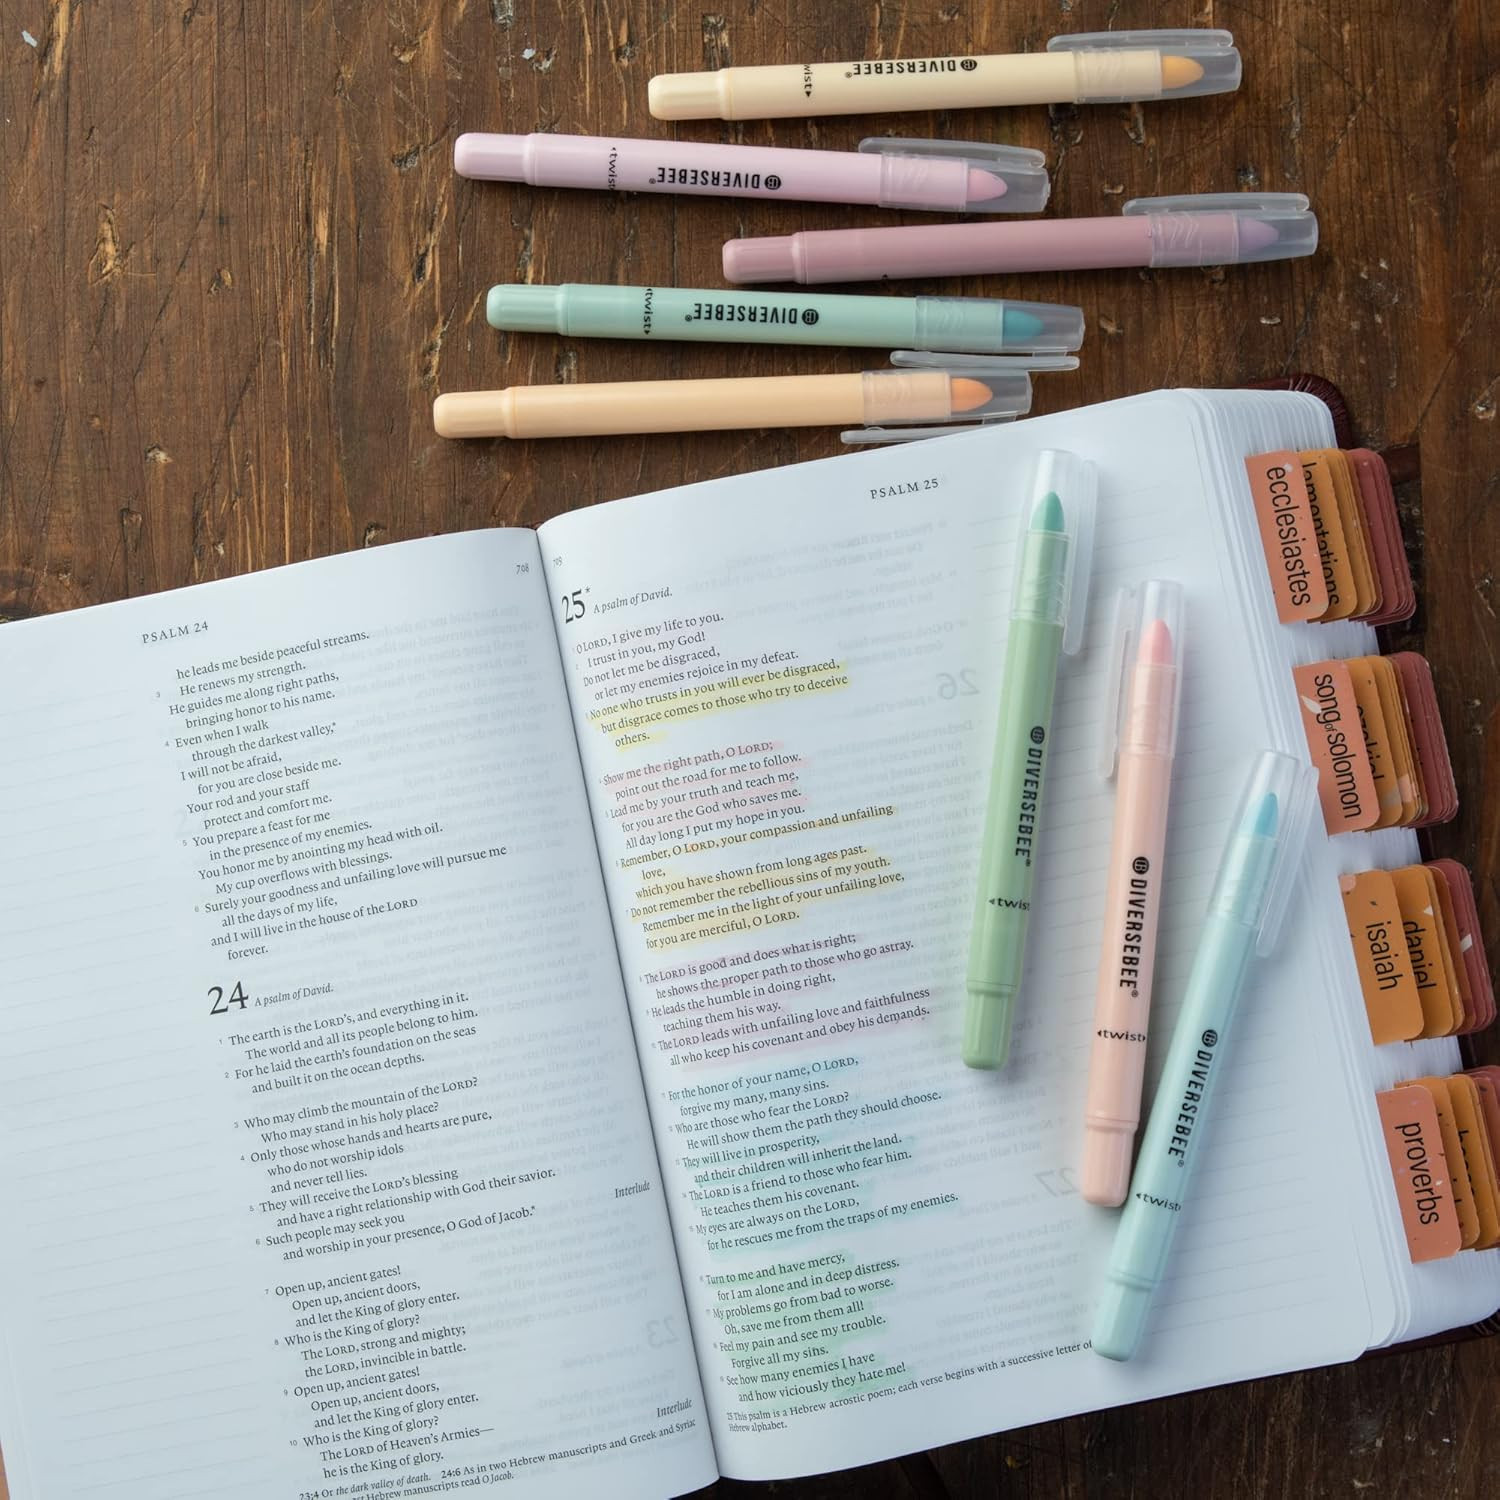 twist▸
DIVERSEBEE®
◂twist
DIVERSEBEE®
◂twist▸
DIVERSEBEE®
PSALM 24
708
he leads me beside peaceful streams.
3 He renews my strength.
He guides me along right paths,
bringing honor to his name.
4 Even when I walk
through the darkest valley,*
I will not be afraid,
for you are close beside me.
Your rod and your staff
protect and comfort me.
5 You prepare a feast for me
in the presence of my enemies.
You honor me by anointing my head with oil.
My cup overflows with blessings.
6 Surely your goodness and unfailing love will pursue me
all the days of my life,
and I will live in the house of the LORD
forever.
24 A psalm of David.
1 The earth is the LORD's, and everything in it.
The world and all its people belong to him.
2 For he laid the earth's foundation on the seas
and built it on the ocean depths.
3 Who may climb the mountain of the LORD?
Who may stand in his holy place?
4 Only those whose hands and hearts are pure,
who do not worship idols
and never tell lies.
5 They will receive the LORD's blessing
and have a right relationship with God their savior.
6 Such people may seek you
and worship in your presence, O God of Jacob.*
Interlude
7 Open up, ancient gates!
Open up, ancient doors,
and let the King of glory enter.
8 Who is the King of glory?
The LORD, strong and mighty;
the LORD, invincible in battle.
9 Open up, ancient gates!
Open up, ancient doors,
and let the King of glory enter.
10 Who is the King of glory?
The LORD of Heaven's Armies—
he is the King of glory.
Interlude
23:4 Or the dark valley of death. 24:6 As in two Hebrew manuscripts and Greek and Syriac
Hebrew manuscripts read O Jacob.
709
PSALM 25
25* A psalm of David.
1 O LORD, I give my life to you.
2 I trust in you, my God!
Do not let me be disgraced,
or let my enemies rejoice in my defeat.
3 No one who trusts in you will ever be disgraced,
but disgrace comes to those who try to deceive
others.
4 Show me the right path, O LORD;
point out the road for me to follow.
5 Lead me by your truth and teach me,
for you are the God who saves me.
All day long I put my hope in you.
6 Remember, O LORD, your compassion and unfailing
love,
which you have shown from long ages past.
7 Do not remember the rebellious sins of my youth.
Remember me in the light of your unfailing love,
for you are merciful, O LORD.
8 The LORD is good and does what is right;
he shows the proper path to those who go astray.
9 He leads the humble in doing right,
teaching them his way.
10 The LORD leads with unfailing love and faithfulness
all who keep his covenant and obey his demands.
11 For the honor of your name, O LORD,
forgive my many, many sins.
12 Who are those who fear the LORD?
He will show them the path they should choose.
13 They will live in prosperity,
and their children will inherit the land.
14 The LORD is a friend to those who fear him.
He teaches them his covenant.
15 My eyes are always on the LORD,
for he rescues me from the traps of my enemies.
16 Turn to me and have mercy,
for I am alone and in deep distress.
17 My problems go from bad to worse.
Oh, save me from them all!
18 Feel my pain and see my trouble.
Forgive all my sins.
19 See how many enemies I have
and how viciously they hate me!
25 This psalm is a Hebrew acrostic poem; each verse begins with a successive letter of
Hebrew alphabet.
DIVERSEBEE®
◂twist
DIVERSEBEE®
◂twist▸
DIVERSEBEE®
◂twist
ecclesiastes
lamentations
song of solomon
ezekiel
isaiah
daniel
proverbs